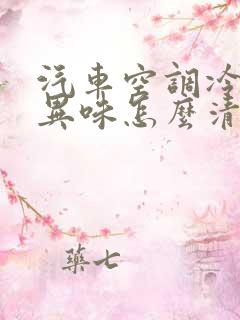 汽車空調冷
異味怎麼清
藥七